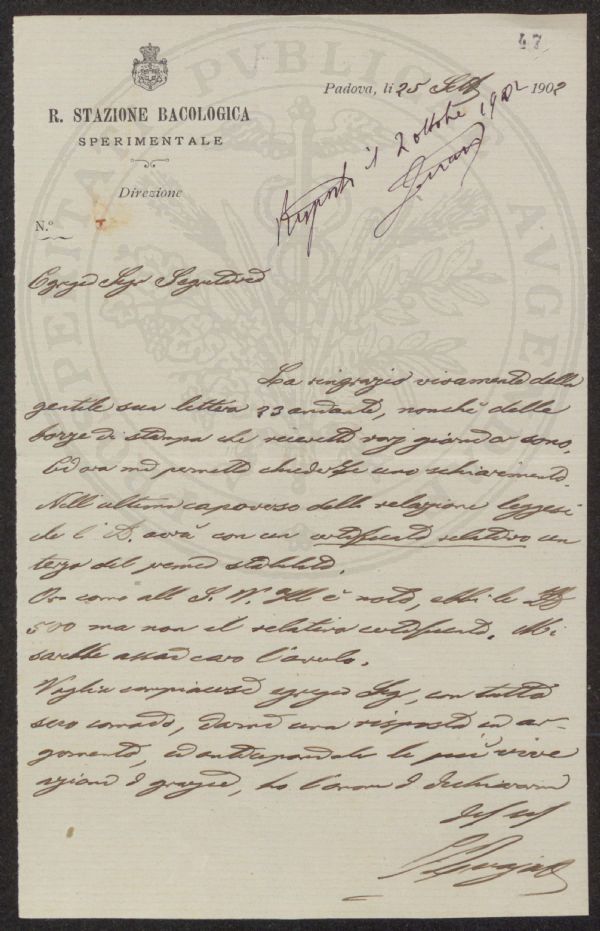 47
R. STAZIONE BACOLOGICA
SPERIMENTALE
Direzione
N.º
Padova, li 25 Sett 1902
Risposto il 2 ottobre 1902
Egregio Sigr Segretario
La ringrazio vivamente della
gentile sua lettera 23 andante, nonchè delle
bozze di stampa che ricevetti varj giorni or sono.
Ed ora mi permetto chiederle uno schiarimento.
Nell'ultimo capoverso della relazione leggesi
che l'A. avrà con un certificato relativo un
terzo del premio stabilito.
Ora come alla S. V. Ill è noto, ebbi le
500 ma non il relativo certificato. Mi
sarebbe assai caro l'averlo.
Voglia compiacersi egregio Sig, con tutto
suo comodo, darmi una risposta in ar-
gomento, ed anticipandole le più vive
azioni di grazie, ho l'onore di dichiararmi